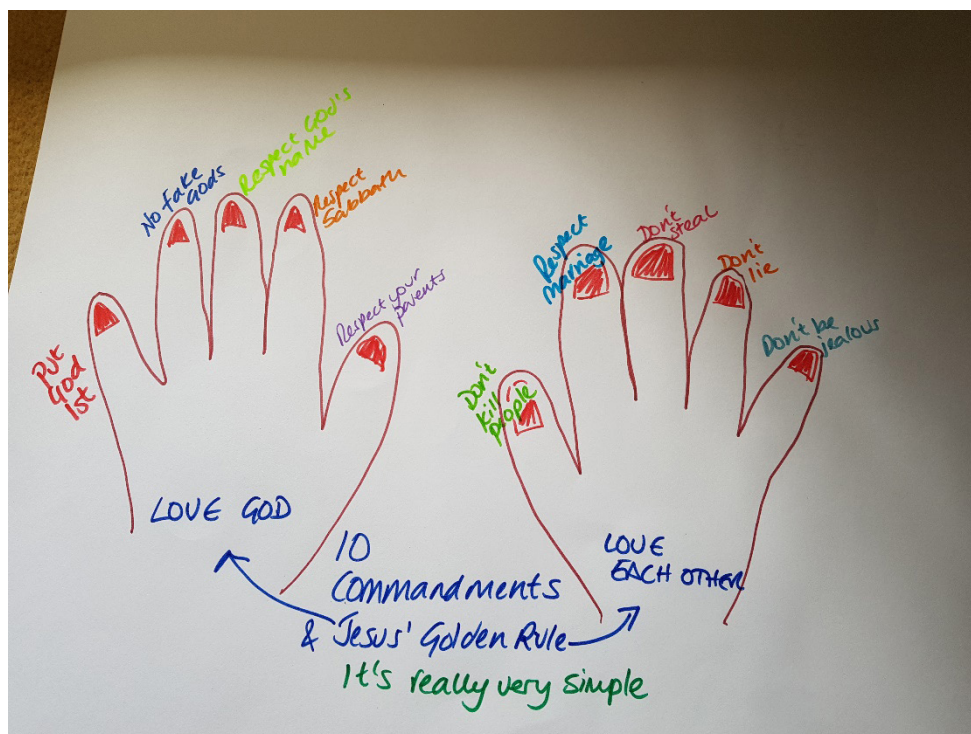 Put
God
1st
No fake
Gods
Respect God's
name
Respect
Sabbath
Respect your
parents
Don't
kill
people
Respect
marriage
Don't
steal
Don't
lie
Don't be
jealous
LOVE GOD
LOVE
EACH OTHER
10
Commandments
& Jesus' Golden Rule
It's really very simple